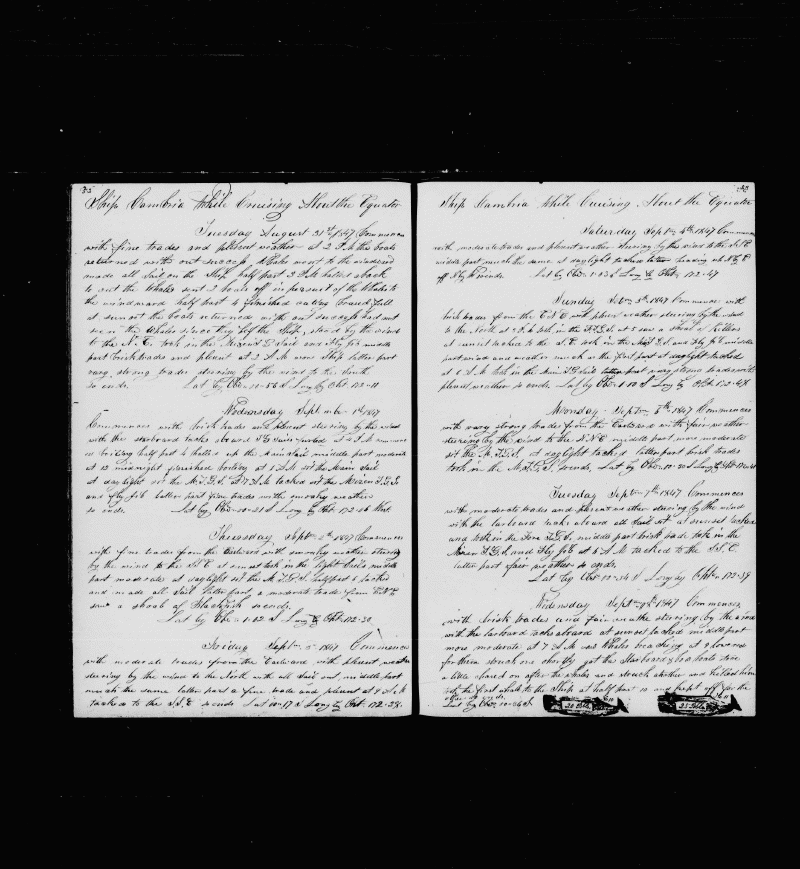 Ship Cambria While Cruising About the Equator
Tuesday August 31st 1847 Commences
with fine trades and plesent weather at 2 P.M the boats
returned with out success, Whales went to the windward
made all sail on the Ship half part 3 P.M halled aback
to cut the Whales sent 2 boats off in persuit of the Whales to
the windward half part 4 finished cutting braced full
at sunset the boats returned with out success had not
seen the Whales since they left the Ship, stand by the wind
to the N.E. took in the Mizen T.G. Sail and Fly Jib middle
part brisk trades and plesent at 2 A.M wore Ship latter part
very strong trades stearing by the wind to the South
so ends. Lat by Obs 0-56 S Long by Cht 172-11
Wednesday September 1st 1847
Commences with brisk trades and plesent stearing by the wind
with the starbord tacks aboard T.G. Sails furled at 4 P.M commenced
boiling half part 4 halled up the main sail middle part moderate
at 12 midnight finished boiling at 1 A.M set the Main Sail
at daylight set the M.T.G.S. at 7 A.M tacked set the Mizen T.G.S
and Fly Jib latter part fine trades with smoaky weather
so ends. Lat by Obs 0-21 S Long by Cht 173-06 West
Thursday Sept 2nd 1847 Commences
with fine trades from the Eastward with smoaky weather stearing
by the wind to the N.E at sunset took in the light Sails middle
part moderate at daylight set the M.T.G.S. half part 6 tacked
and made all Sail latter part a moderate trade from E.N.E
saw a shoal of Blackfish so ends.
Lat by Obs 1-02 S Long by Cht 172-30
Friday Sept 3 1847 Commences
with moderate trades from the Eastward with plesent weather
stearing by the wind to the North with all Sail out middle part
much the same latter part a fine trade and plesent at 9 A.M
tacked to the S.S.E so ends Lat 0-17 S Long by Cht 172-28
Ship Cambria While Cruising About the Equator
Saturday Sept 4th 1847 Commences
with moderate trades and plesent weather stearing by the wind to the S.S.E
middle part much the same at daylight tacked latter heading up N.E
off N by W so ends Lat by Obs 1-03 S Long by Cht 172-47
Sunday Sept 5th 1847 Commences with
brisk trades from the E.N.E with plesent weather stearing by the wind
to the North at 2 P.M took in the F.T.G.S. at 5 saw a shoal of Killers
at sunset tacked to the S.E took in the Main T.G.S. and Fly Jib middle
part wind and weather much as the first part at daylight tacked
at 6 A.M set the Main T.G. Sail latter part very strong trades with
plesent weather so ends Lat by Obs 1-10 S Long by Cht 172-48
Monday Sept 6th 1847 Commences
with very strong trades from the Eastward with fair weather
stearing by the wind to the N.N.E middle part more moderate
set the M.T.G.S. at daylight tacked latter part brisk trades
took in the M.T.G.S. so ends, Lat by Obs 0-50 S Long by Cht 172-41
Tuesday Sept 7th 1847 Commences
with moderate trades and plesent weather stearing by the wind
with the larboard tacks aboard all Sail set at sunset tacked
and took in the Fore T.G.S. middle part brisk trade took in the
Mizen T.G.S. and Fly Jib at 4 A.M tacked to the S.S.E.
latter part fair weather so ends.
Lat by Obs 0-54 S Long by Cht 172-39
Wednesday Sept 8th 1847 Commences
with brisk trades and fair weathe stearing by the wind
with the larboard tacks aboard at sunset tacked middle part
more moderate at 7 A.M saw Whales breaching at 9 lowered
for them struck one shortly got the Starboard boat stove
a little chased on after the whales and struck another and killed him
took the first whale to the Ship at half part 10 and kept off for the
other so ends.
Lat by Obs 0-36 S
20 Bbls
25 Bbls